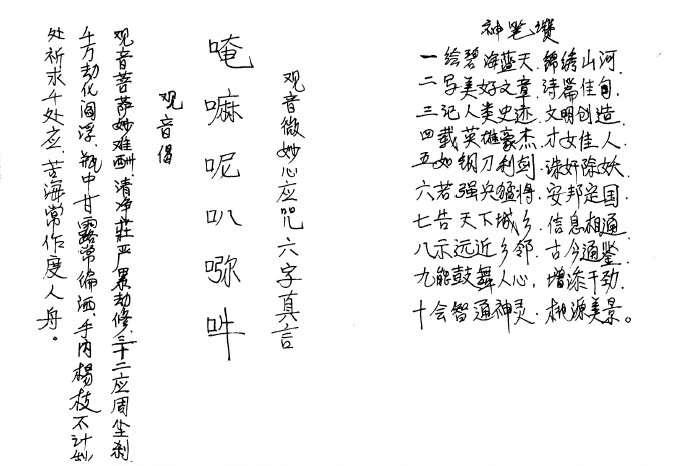 神笔赞
一绘碧海蓝天.锦绣山河.
二写美好文章.诗篇佳句.
三记人类史迹.文明创造.
四载英雄豪杰.才女佳人.
五如钢刀利剑.诛奸除妖.
六若强兵猛将.安邦定国.
七告天下城乡.信息相通
八示远近乡邻.古今通鉴.
九能鼓舞人心,增添干劲.
十会智通神灵.桃源美景。
观音微妙心应咒六字真言
唵嘛呢叭弥吽
观音偈
观音菩萨妙难酬.清净莊严累劫修.三十二应周尘刹.
千万劫化阎浮.瓶中甘露常徧洒.手内楊枝不计
处祈求千处应.苦海常作度人舟。